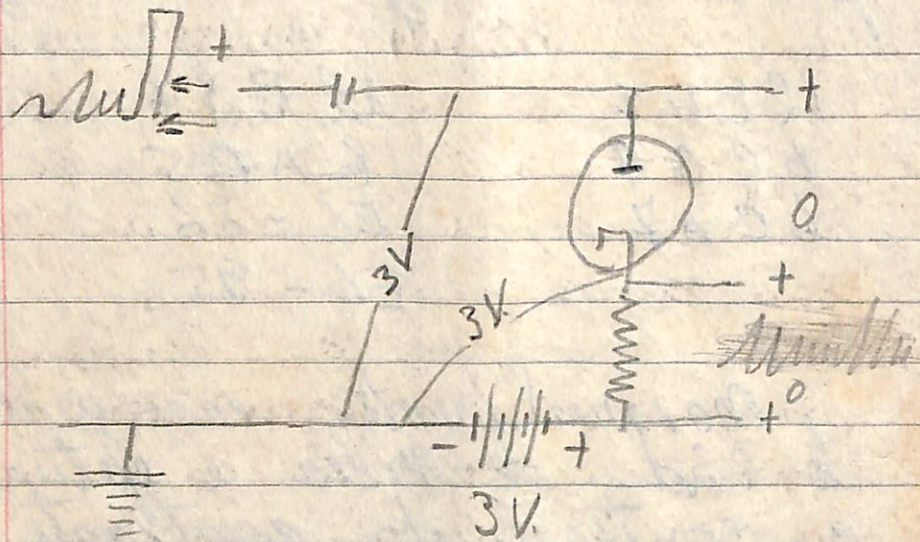 +
+
0
3V
+
3V.
0
+
- +
3V.